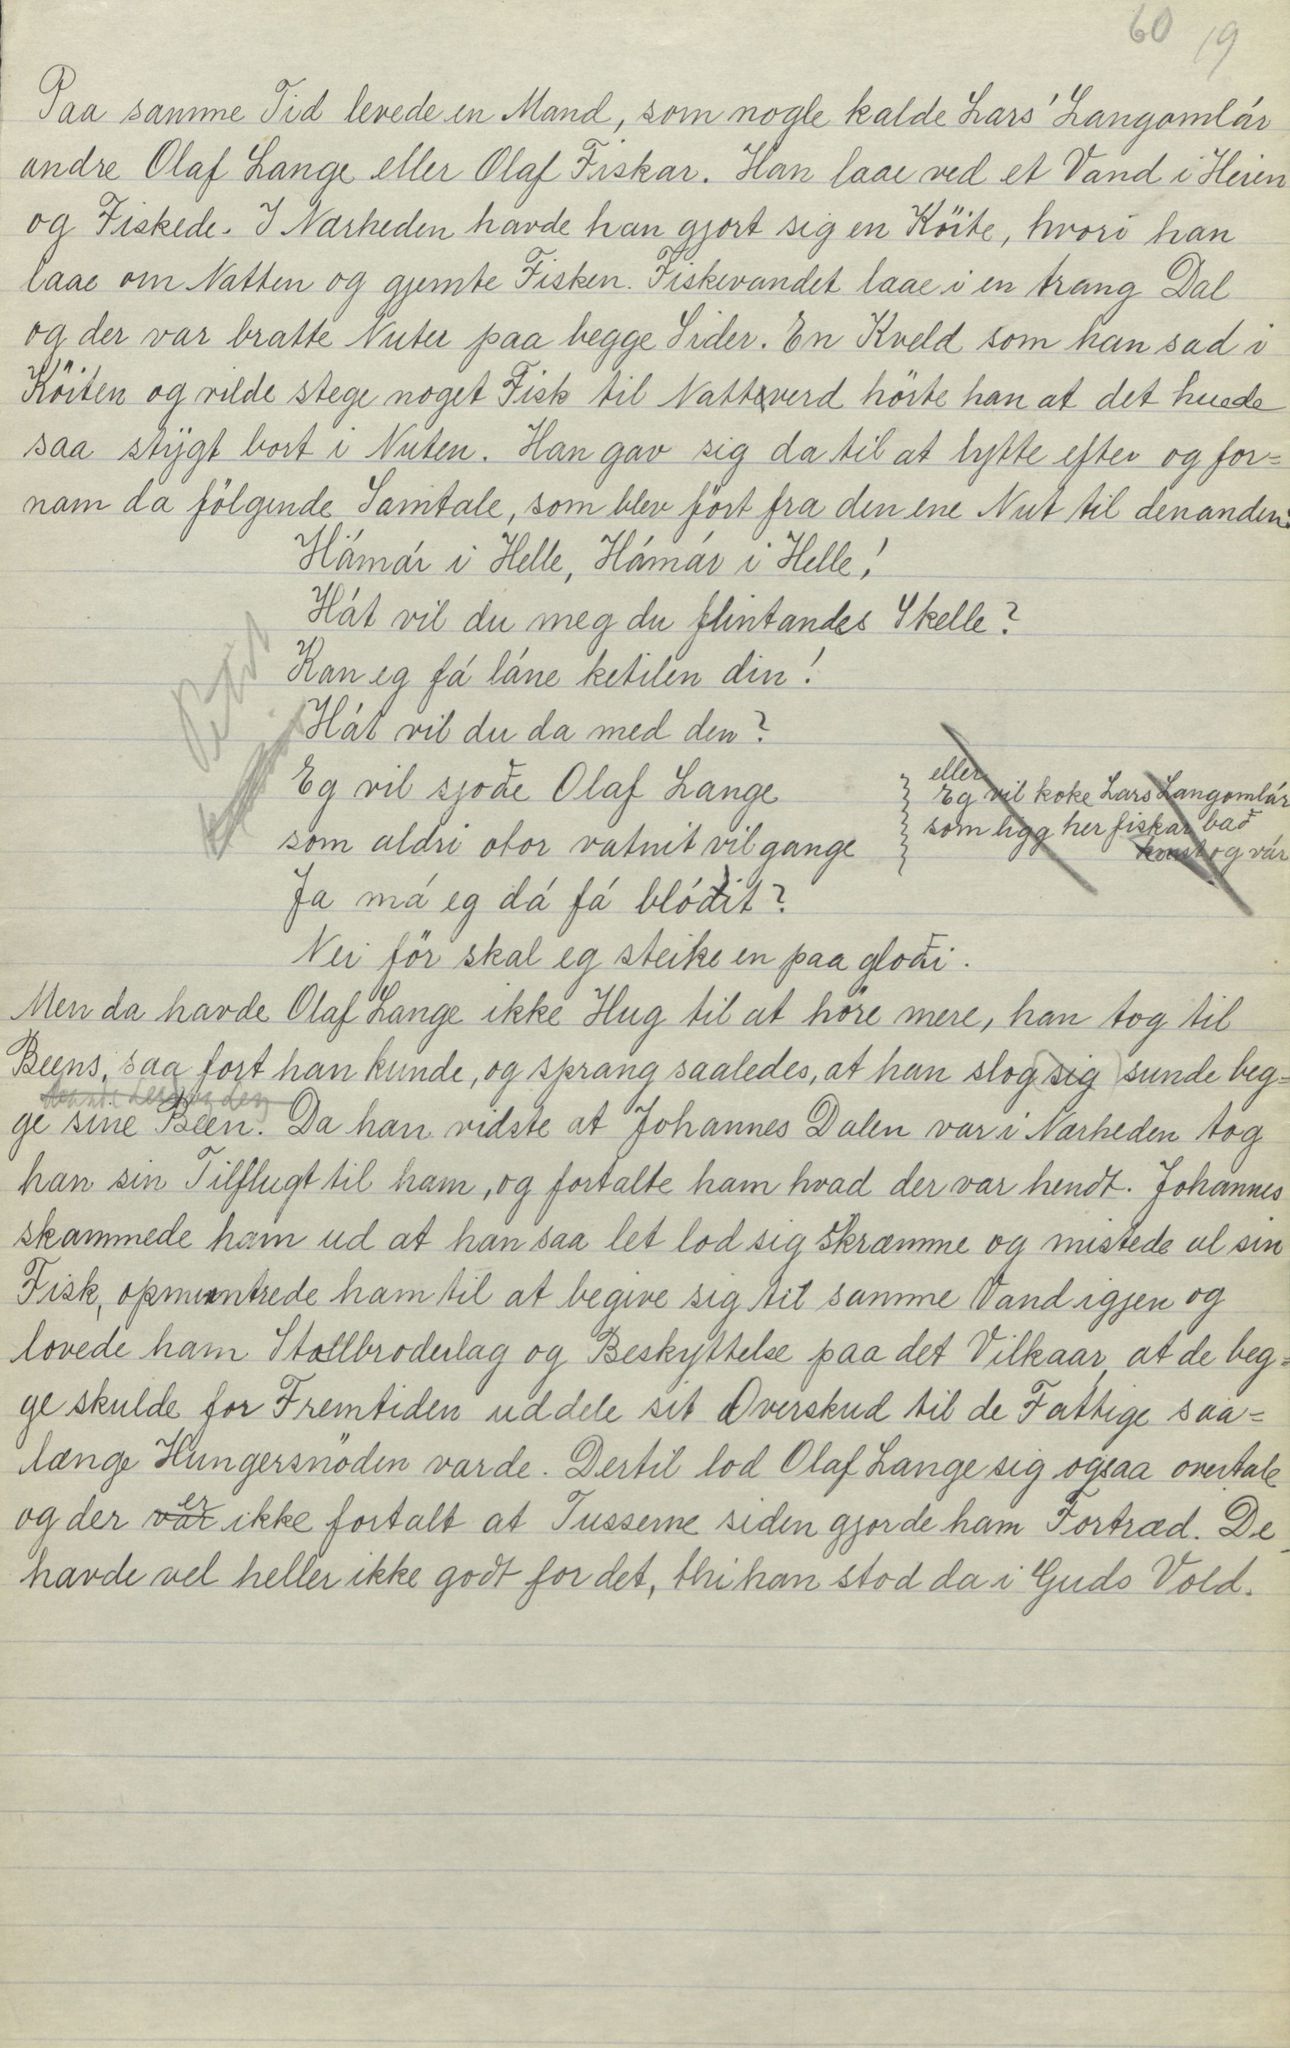 60 19
Paa samme Tid levede en Mand, som nogle kalde Lars Langomlár
andre Olaf Lange eller Olaf Fiskar. Han laae ved et Vand i Heien
og Fiskede. I Nærheden havde han gjort sig en Köite, hvori han
laae om Natten og gjemte Fisken. Fiskevandet laae i en trang Dal
og der var bratte Nuter paa begge Sider. En Kveld som han sad i
Köiten og vilde stege noget Fisk til Nattverd hörte han at det huede
saa stygt bort i Nuten. Han gav sig da til at lytte efter og for=
nam da fölgende Samtale, som blev fört fra den ene Nut til denanden:
Hámár i Helle, Hámár i Helle!
Hát vil du meg du flintandes Skelle?
Kan eg fá láne ketilen din!
Hát vil du da med den?
Eg vil sjođe Olaf Lange
som aldri otor vatnit vil gange
eller
Eg vil koke Lars Langomlár
som ligg her fiskar bađ
haust og vár
Ja má eg dá fá blóđit?
Nei för skal eg steike en paa glođi.
Men da havde Olaf Lange ikke Hug til at höre mere, han tog til
Beens, saa fort han kunde, og sprang saaledes, at han slog (sig) sunde beg=
ge sine Been. Da han vidste at Johannes Dalen var i Nærheden tog
han sin Tilflugt til ham, og fortalte ham hvad der var hendt. Johannes
skammede ham ud at han saa let lod sig skræmme og mistede al sin
Fisk, opmuntrede ham til at begive sig til samme Vand igjen og
lovede ham Stallbroderlag og Beskyttelse paa det Vilkaar, at de beg=
ge skulde for Fremtiden uddele sit Overskud til de Fattige saa=
længe Hungersnöden varde. Dertil lod Olaf Lange sig ogsaa overtale
og der var er ikke fortalt at Tusserne siden gjorde ham Fortræd. De
havde vel heller ikke godt for det, thi han stod da i Guds Vold.